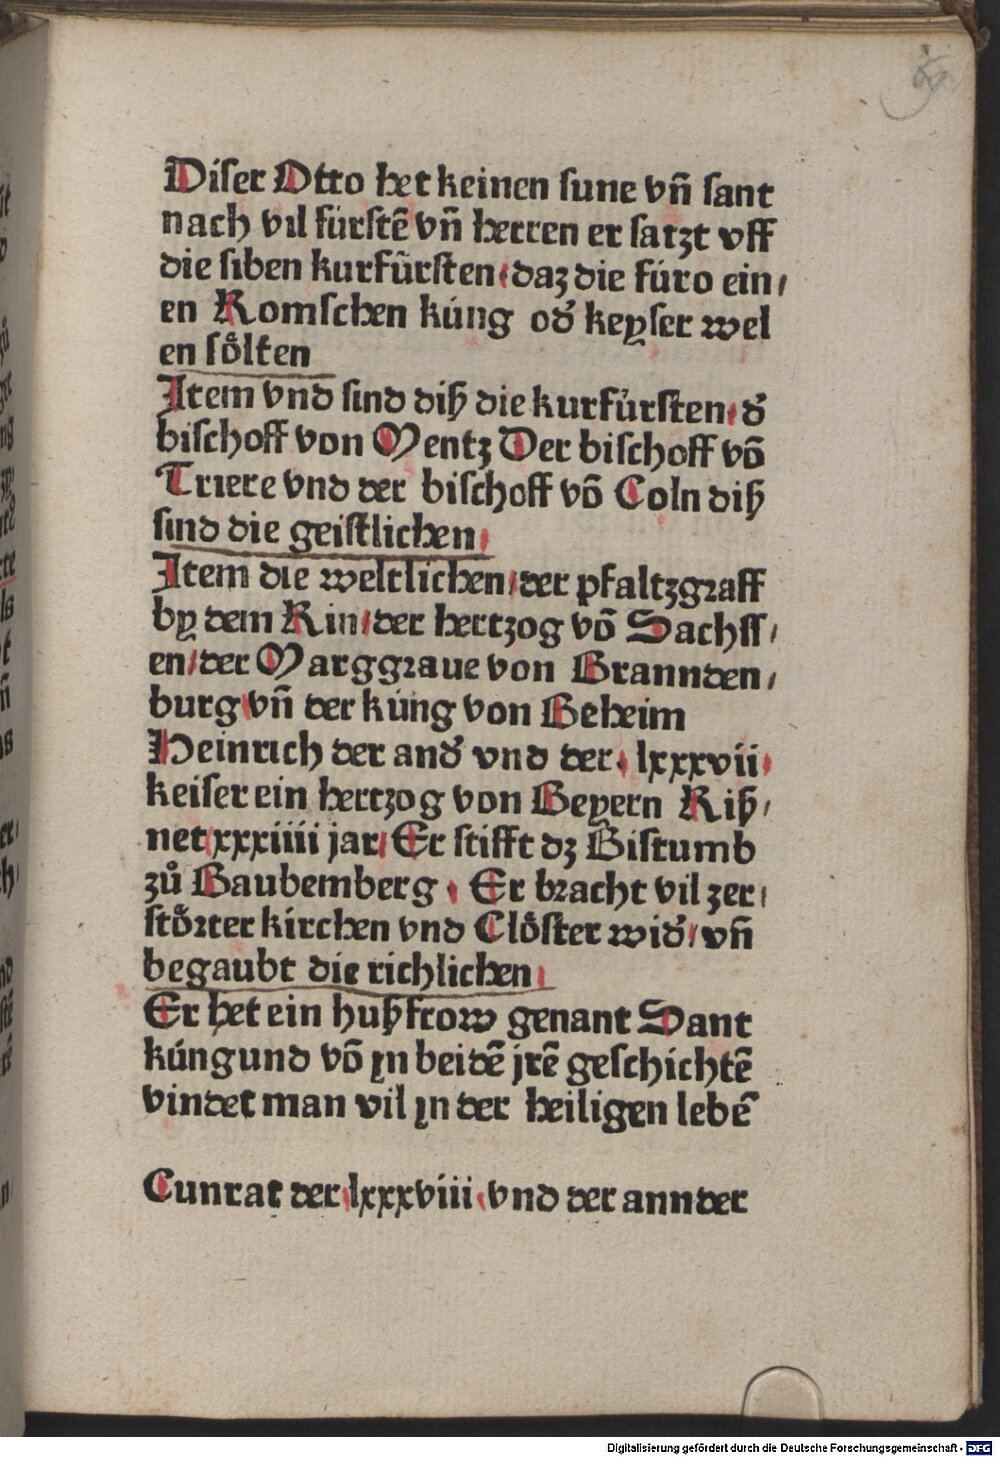 Diser Otto het keinen sune vn̄ sant
nach vil fürstē vn̄ herren er satzt vff
die siben kurfürsten daz die füro ein/
en Romschen küng od' keyser wel
en sölten
Item vnd sind diß die kurfürsten d'
bischoff von Mentz Der bischoff vō
Triere vnd der bischoff vō Coln diß
sind die geistlichen
Item die weltlichen/der pfaltzgraff
by dem Rin/der hertzog vō Sachss/
en/der Marggraue von Brannden/
burg vn̄ der küng von Beheim
Heinrich der and' vnd der. lxxxvii
keiser ein hertzog von Beyern Riß/
net xxxiiii jar/Er stifft dz Bistumb
zů Baubemberg . Er bracht vil zer/
störter kirchen vnd Clöster wid'/vn̄
begaubt die richlichen
Er het ein hußfrow genant Sant
küngund vō in beidē jrē geschichtē
vindet man vil in der heiligen lebē

Cunrat der lxxxviii vnd der annder
Digitalisierung gefördert durch die Deutsche Forschungsgemeinschaft - DFG